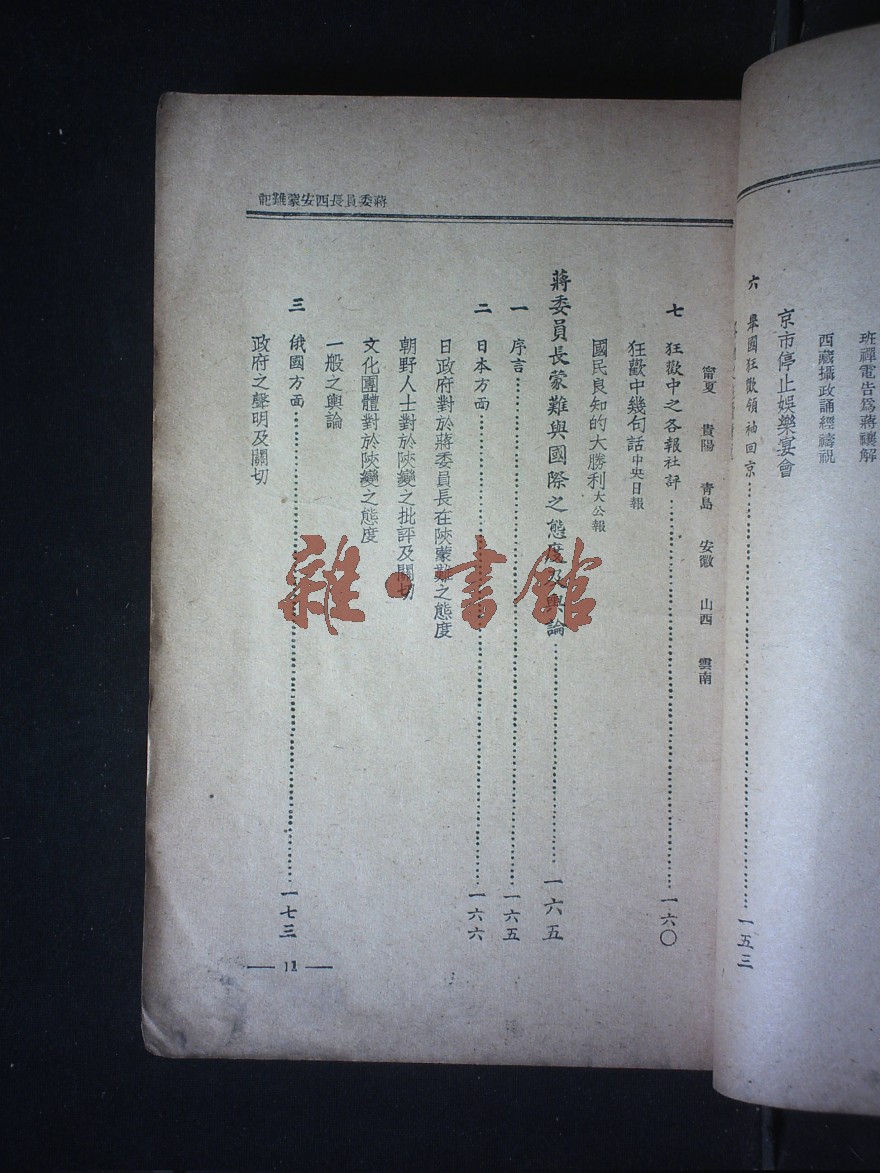 班禪電吿爲蔣禳解
西藏攝政誦經禱祝
京市停止娛樂宴會
六 舉國狂歡領袖回京……一五三
蔣委員長西安蒙難記
甯夏 貴陽 青島 安徽 山西 雲南
七 狂歡中之各報社評……一六〇
狂歡中幾句話中央日報
國民良知的大勝利大公報
蔣委員長蒙難與國際之態度及輿論……一六五
一 序言……一六五
二 日本方面……一六六
日政府對於蔣委員長在陝蒙難之態度
朝野人士對於陝變之批評及關切
文化團體對於陝變之態度
一般之輿論
三 俄國方面……一七三
政府之聲明及關切
— 11 —
雜·書館